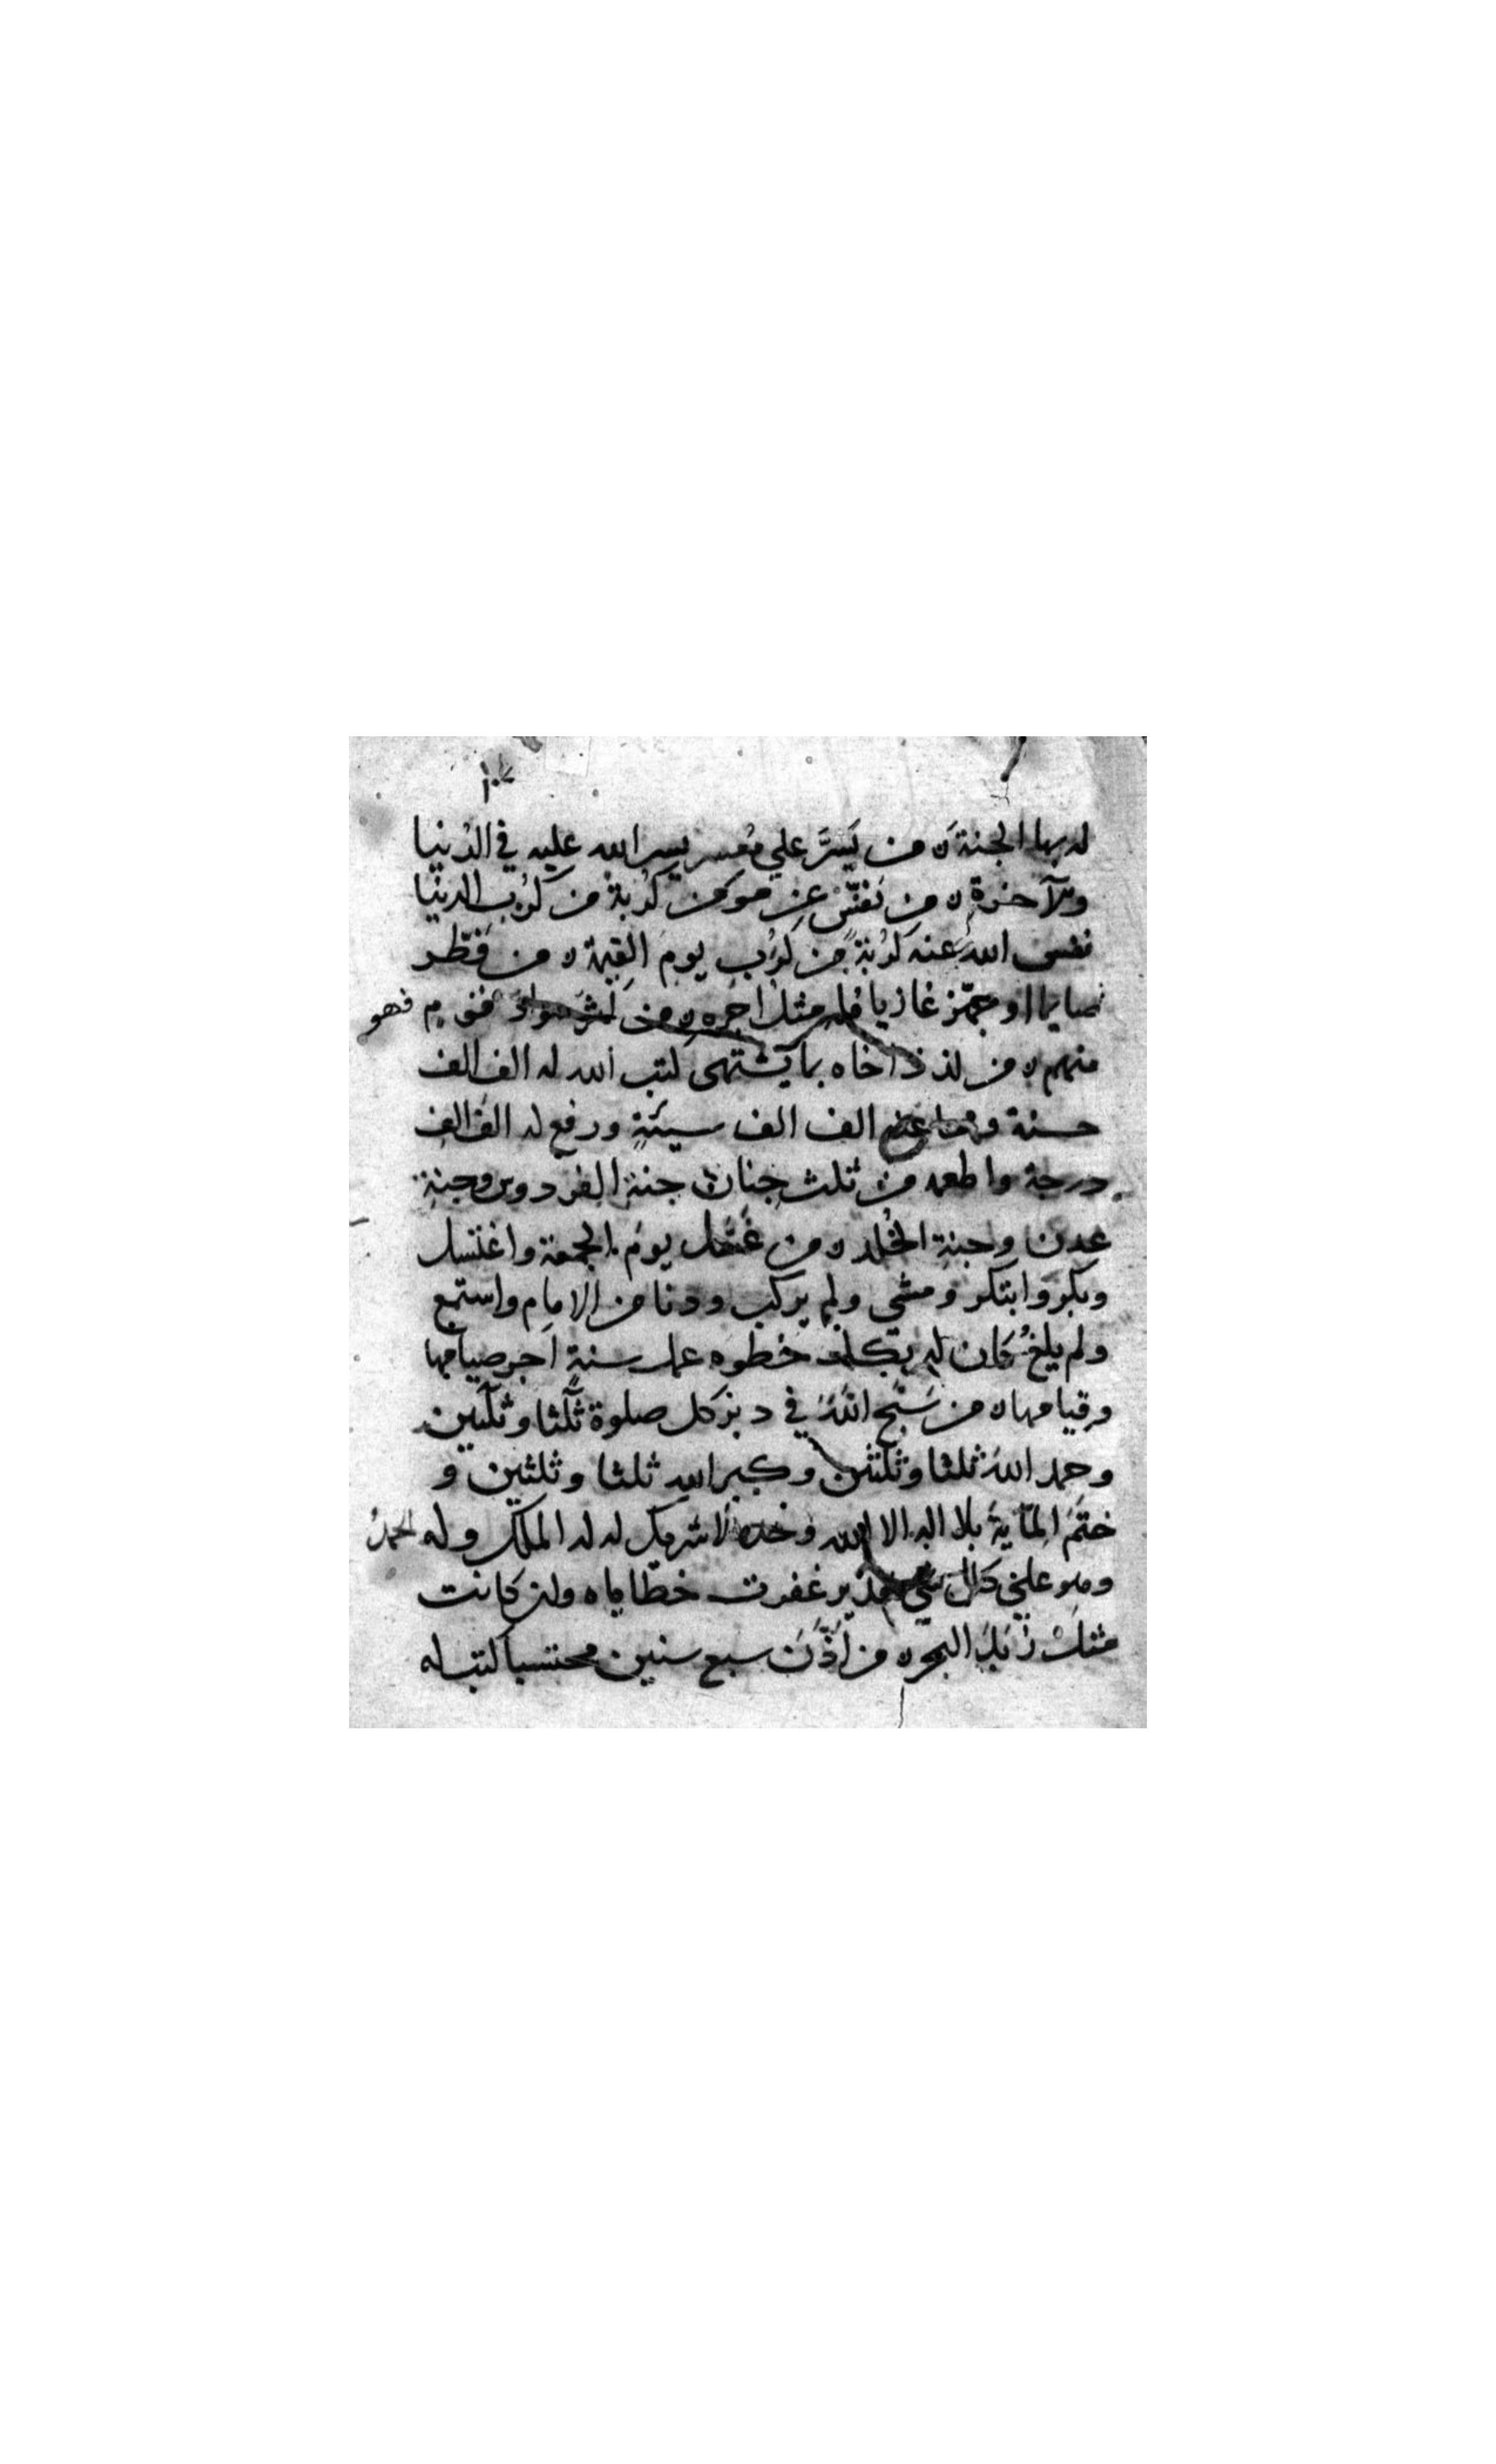 له بها الجنة ٥ من يَسَّرَ علي مُعسر يسر الله عليه في الدُنيا
والآخرة ٥ من نَفَّسَ عن مومن كُربة من كُرَب الدنيا
نفس الله عنه كُربةً من كُرَبِ يومَ القِيمة ٥ من فَطّر
صايما او جهّز غازيا فله مثل اجره ٥ من كثّر سواد قوم فهو
منهم ٥ من لذذ اخاه بما يَشتهى كتب الله له الف الف
حسنة ومحا عنه الف الف سيئةٍ ورفع له الف الف
درجة واطعمه من ثلث جنان جنة الفردوس وجنةِ
عدن وجنةِ الخُلد ٥ من غَسَّل يومَ الجمعة واغتسل
وبكر وابتكر ومشي ولم يركب ودنا من الامام واستمع
ولم يلغُ كان له بكل خطوه عمل سنةٍ اجر صيامها
وقيامها ٥ من سَبَّح اللهَ في دبر كل صلوة ثلثا وثلثين
وحمد اللهَ ثلثا وثلثين وكبر الله ثلثا وثلثين و
ختَمَ المايةَ بلا اله الا الله وحده لا شريك له له الملك وله الحمدُ
وهو على كل شي قدير غفرت خطاياه ولن كانت
مثلَ زَبَدِ البحر ٥ من اَذَّنَ سبع سنين محتسباً كتب له